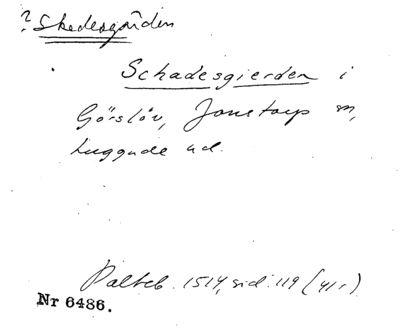 ? Skedesgården
Schadesgierden i
Görslöv, Jonstorp sn,
Luggude hd.
Palteb. 1514, sid. 119 (41r)
Nr 6486.